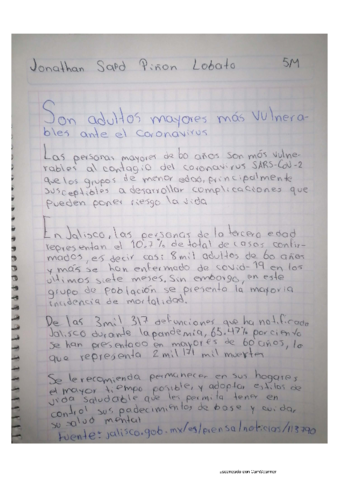 Jonathan Saed Piñon Lobato 5M
Son adultos mayores más vulnera-
bles ante el coronavirus
Las personas mayores de 60 años son más vulne-
rables al contagio del coronavirus SARS-CoV-2
que los grupos de menor edad, principalmente
susceptibles a desarrollar complicaciones que
pueden poner riesgo la vida
En Jalisco, las personas de la tercera edad
representan el 10.7% de total de casos confir-
mados, es decir casi 8 mil adultos de 60 años
y más se han enfermado de covid-19 en los
ultimos siete meses, Sin embargo, en este
grupo de población se presenta la mayoria
incidencia de mortalidad.
De las 3 mil 317 defunciones que ha notificado
Jalisco durante la pandemia, 65.47% por ciento
se han presentado en mayores de 60 años, lo
que representa 2 mil 171 mil muertes
Se le recomienda permanecer en sus hogares
el mayor tiempo posible, y adoptar estilos de
vida saludable que les permita tener en
control sus padecimientos de base y cuida,
se salud mental
fuente: jalisco.gob.mx/es/prensa/noticias/
Escaneado con CamScanner